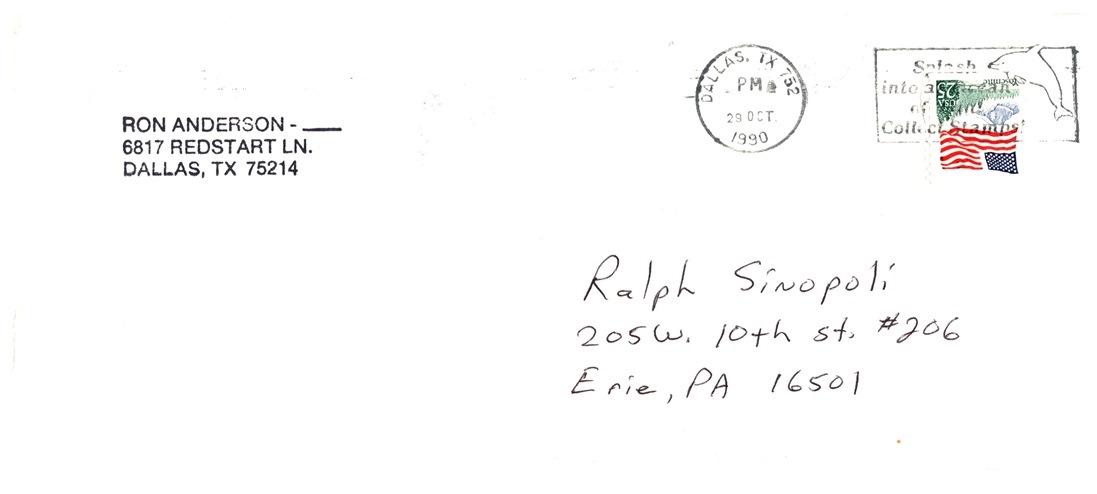 RON ANDERSON - ___
6817 REDSTART LN.
DALLAS, TX 75214
DALLAS, TX 752
PM
29 OCT.
1990
Splash
into an ocean
of
Collect Stamps!
Yosemite
25
USA
Ralph Sinopoli
205 W. 10th st. #206
Erie, PA 16501